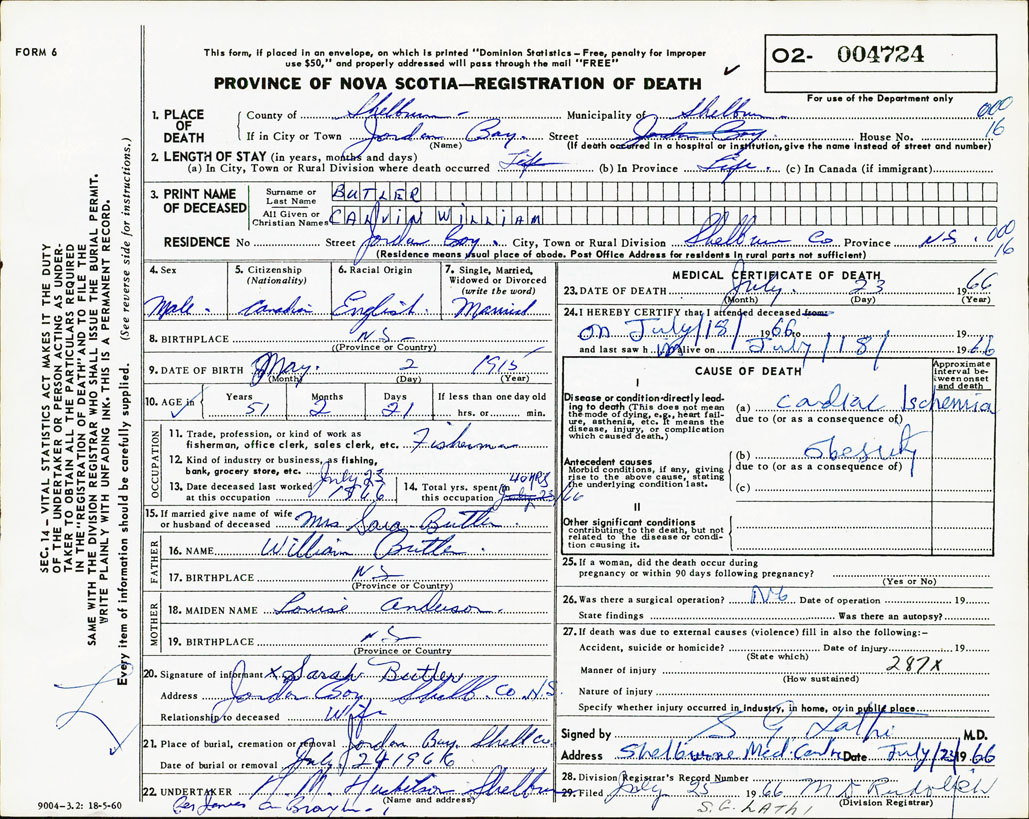 FORM 6
This form, if placed in an envelope, on which is printed "Dominion Statistics – Free, penalty for improper
use $50," and properly addressed will pass through the mail "FREE"
PROVINCE OF NOVA SCOTIA—REGISTRATION OF DEATH ✓
O2- 004724
For use of the Department only
SEC. 14 – VITAL STATISTICS ACT MAKES IT THE DUTY
OF THE UNDERTAKER OR PERSON ACTING AS UNDER-
TAKER TO OBTAIN ALL THE PARTICULARS REQUIRED
IN THE "REGISTRATION OF DEATH" AND TO FILE THE
SAME WITH THE DIVISION REGISTRAR WHO SHALL ISSUE THE BURIAL PERMIT.
WRITE PLAINLY WITH UNFADING INK. THIS IS A PERMANENT RECORD.
Every item of information should be carefully supplied. (See reverse side for instructions.)
1. PLACE OF DEATH
County of Shelburn Municipality of Shelburn 000
If in City or Town Jordan Bay. Street Jordan Bay House No. 16
(Name) (If death occurred in a hospital or institution, give the name instead of street and number)
2. LENGTH OF STAY (in years, months and days)
(a) In City, Town or Rural Division where death occurred Life (b) In Province Life. (c) In Canada (if immigrant)
3. PRINT NAME OF DECEASED
Surname or Last Name BUTLER
All Given or Christian Names CALVIN WILLIAM
RESIDENCE No Street Jordan Bay. City, Town or Rural Division Shelburn Co Province N.S. 000
(Residence means usual place of abode. Post Office Address for residents in rural parts not sufficient) 16
4. Sex
Male.
5. Citizenship
(Nationality)
Canadian
6. Racial Origin
English.
7. Single, Married,
Widowed or Divorced
(write the word)
Married
8. BIRTHPLACE N S
((Province or Country)
9. DATE OF BIRTH May. 2 1915
(Month) (Day) (Year)
10. AGE in Years 51 Months 2 Days 21 If less than one day old
hrs. or min.
OCCUPATION
11. Trade, profession, or kind of work as
fisherman, office clerk, sales clerk, etc. Fisherman
12. Kind of industry or business, as fishing,
bank, grocery store, etc.
13. Date deceased last worked
at this occupation July 23 1966
14. Total yrs. spent in
this occupation 40 YRS July 23/66
15. If married give name of wife
or husband of deceased Mrs Sara Butler.
FATHER
16. NAME William Butler.
17. BIRTHPLACE N S
(Province or Country)
MOTHER
18. MAIDEN NAME Louise Anderson.
19. BIRTHPLACE N S
(Province or Country
20. Signature of informant X Sarah Butler
Address Jordan Bay Shelb. Co N.S.
Relationship to deceased Wife
21. Place of burial, cremation or removal Jordan Bay. Shelb Co.
Date of burial or removal July 24 1966
22. UNDERTAKER Shelburn
(Name and address)
Per James
9004–3.2: 18-5-60
MEDICAL CERTIFICATE OF DEATH
23. DATE OF DEATH July. 23 1966
(Month) (Day) (Year)
24. I HEREBY CERTIFY that I attended deceased from:
on July/18/ 1966 to 19
and last saw h im alive on July/18/ 1966
CAUSE OF DEATH
Approximate
interval be-
tween onset
and death
I
Disease or condition directly lead-
ing to death (This does not mean
the mode of dying, e.g., heart fail-
ure, asthenia, etc. It means the
disease, injury, or complication
which caused death.)
(a) Cardiac Ischemia
due to (or as a consequence of)
Antecedent causes
Morbid conditions, if any, giving
rise to the above cause, stating
the underlying condition last.
(b) obesity
due to (or as a consequence of)
(c)
II
Other significant conditions
contributing to the death, but not
related to the disease or condi-
tion causing it.
25. If a woman, did the death occur during
pregnancy or within 90 days following pregnancy?
(Yes or No)
26. Was there a surgical operation? No Date of operation 19
State findings Was there an autopsy?
27. If death was due to external causes (violence) fill in also the following:–
Accident, suicide or homicide? Date of injury 19
(State which)
287X
Manner of injury
(How sustained)
Nature of injury
Specify whether injury occurred in industry, in home, or in public place
Signed by S G Lathi M.D.
Address Shelburne Med. Centre Date July/23 1966
28. Division Registrar's Record Number
29. Filed July 25 1966 M D Rudolph
(Division Registrar)
S.G. LATHI